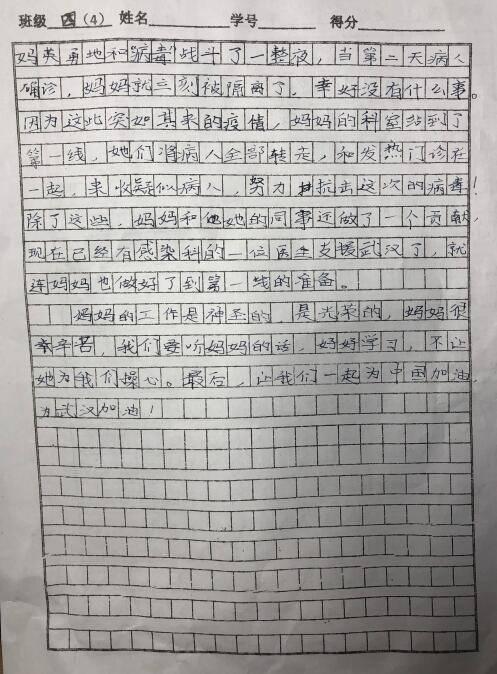 班级 四（4） 姓名 学号 得分
妈英勇地和“病毒”战斗了一整夜，当第二天病人
确诊，妈妈就立刻被隔离了，幸好没有什么事。
因为这此突如其来的疫情，妈妈的科室站到了
第一线，她们将病人全部转走，和发热门诊在
一起，来收疑似病人，努力抗击这次的病毒！
除了这些，妈妈和她的同事还做了一个贡献，
现在已经有感染科的一位医生支援武汉了，就
连妈妈也做好了到第一线的准备。
妈妈的工作是神圣的，是光荣的，妈妈很
辛苦，我们要听妈妈的话，好好学习，不让
她为我们操心。最后，让我们一起为中国加油，
为武汉加油！